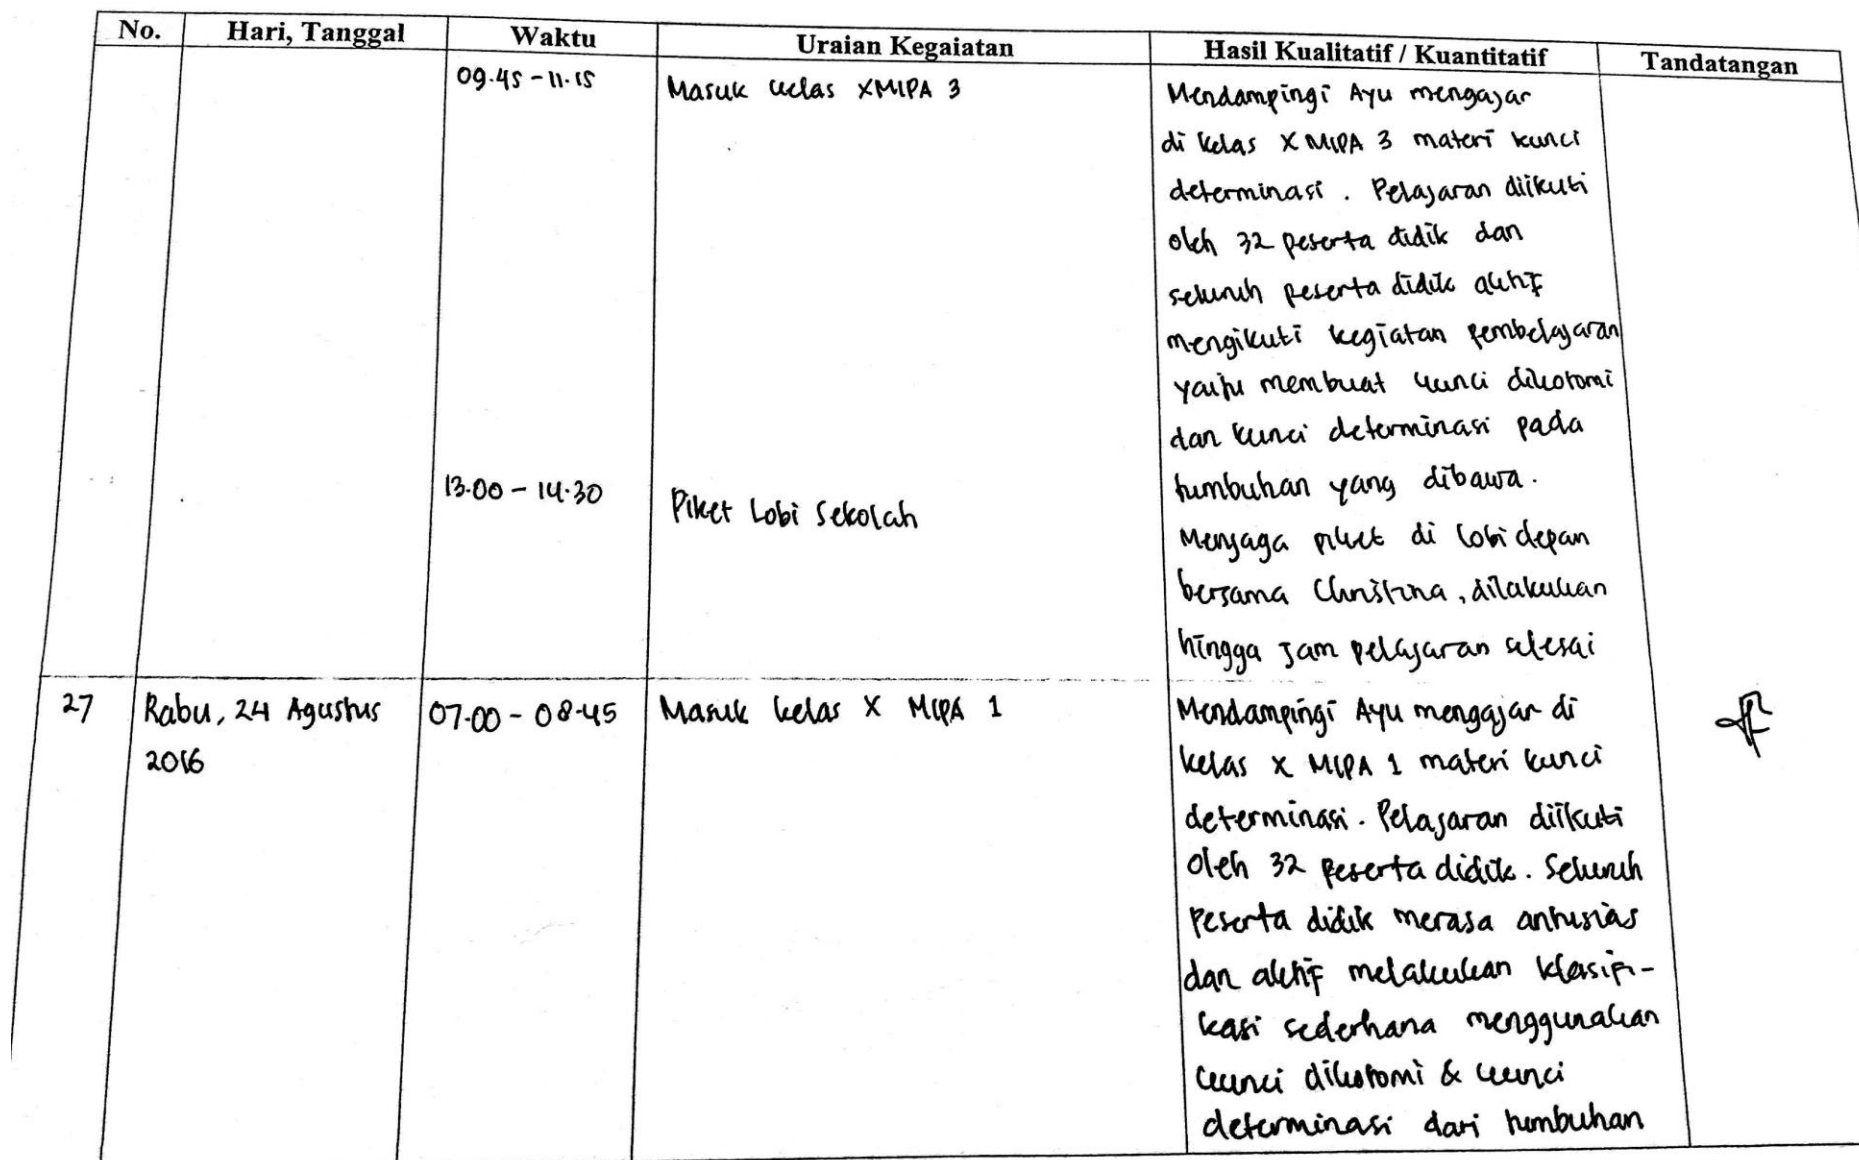 No. Hari, Tanggal Waktu Uraian Kegaiatan Hasil Kualitatif / Kuantitatif Tandatangan
09.45 - 11.15 Masuk kelas X MIPA 3 Mendampingi Ayu mengajar
di kelas X MIPA 3 materi kunci
determinasi. Pelajaran diikuti
oleh 32 peserta didik dan
seluruh peserta didik aktif
mengikuti kegiatan pembelajaran
yaitu membuat kunci dikotomi
dan kunci determinasi pada
tumbuhan yang dibawa.
13.00 - 14.30 Piket Lobi Sekolah
Menjaga piket di lobi depan
bersama Christina, dilakukan
hingga jam pelajaran selesai
27 Rabu, 24 Agustus 07.00 - 08.45 Masuk kelas X MIPA 1 Mendampingi Ayu mengajar di
2016 kelas X MIPA 1 materi kunci
determinasi. Pelajaran diikuti
oleh 32 peserta didik. Seluruh
peserta didik merasa antusias
dan aktif melakukan klasifi-
kasi sederhana menggunakan
kunci dikotomi & kunci
determinasi dari tumbuhan